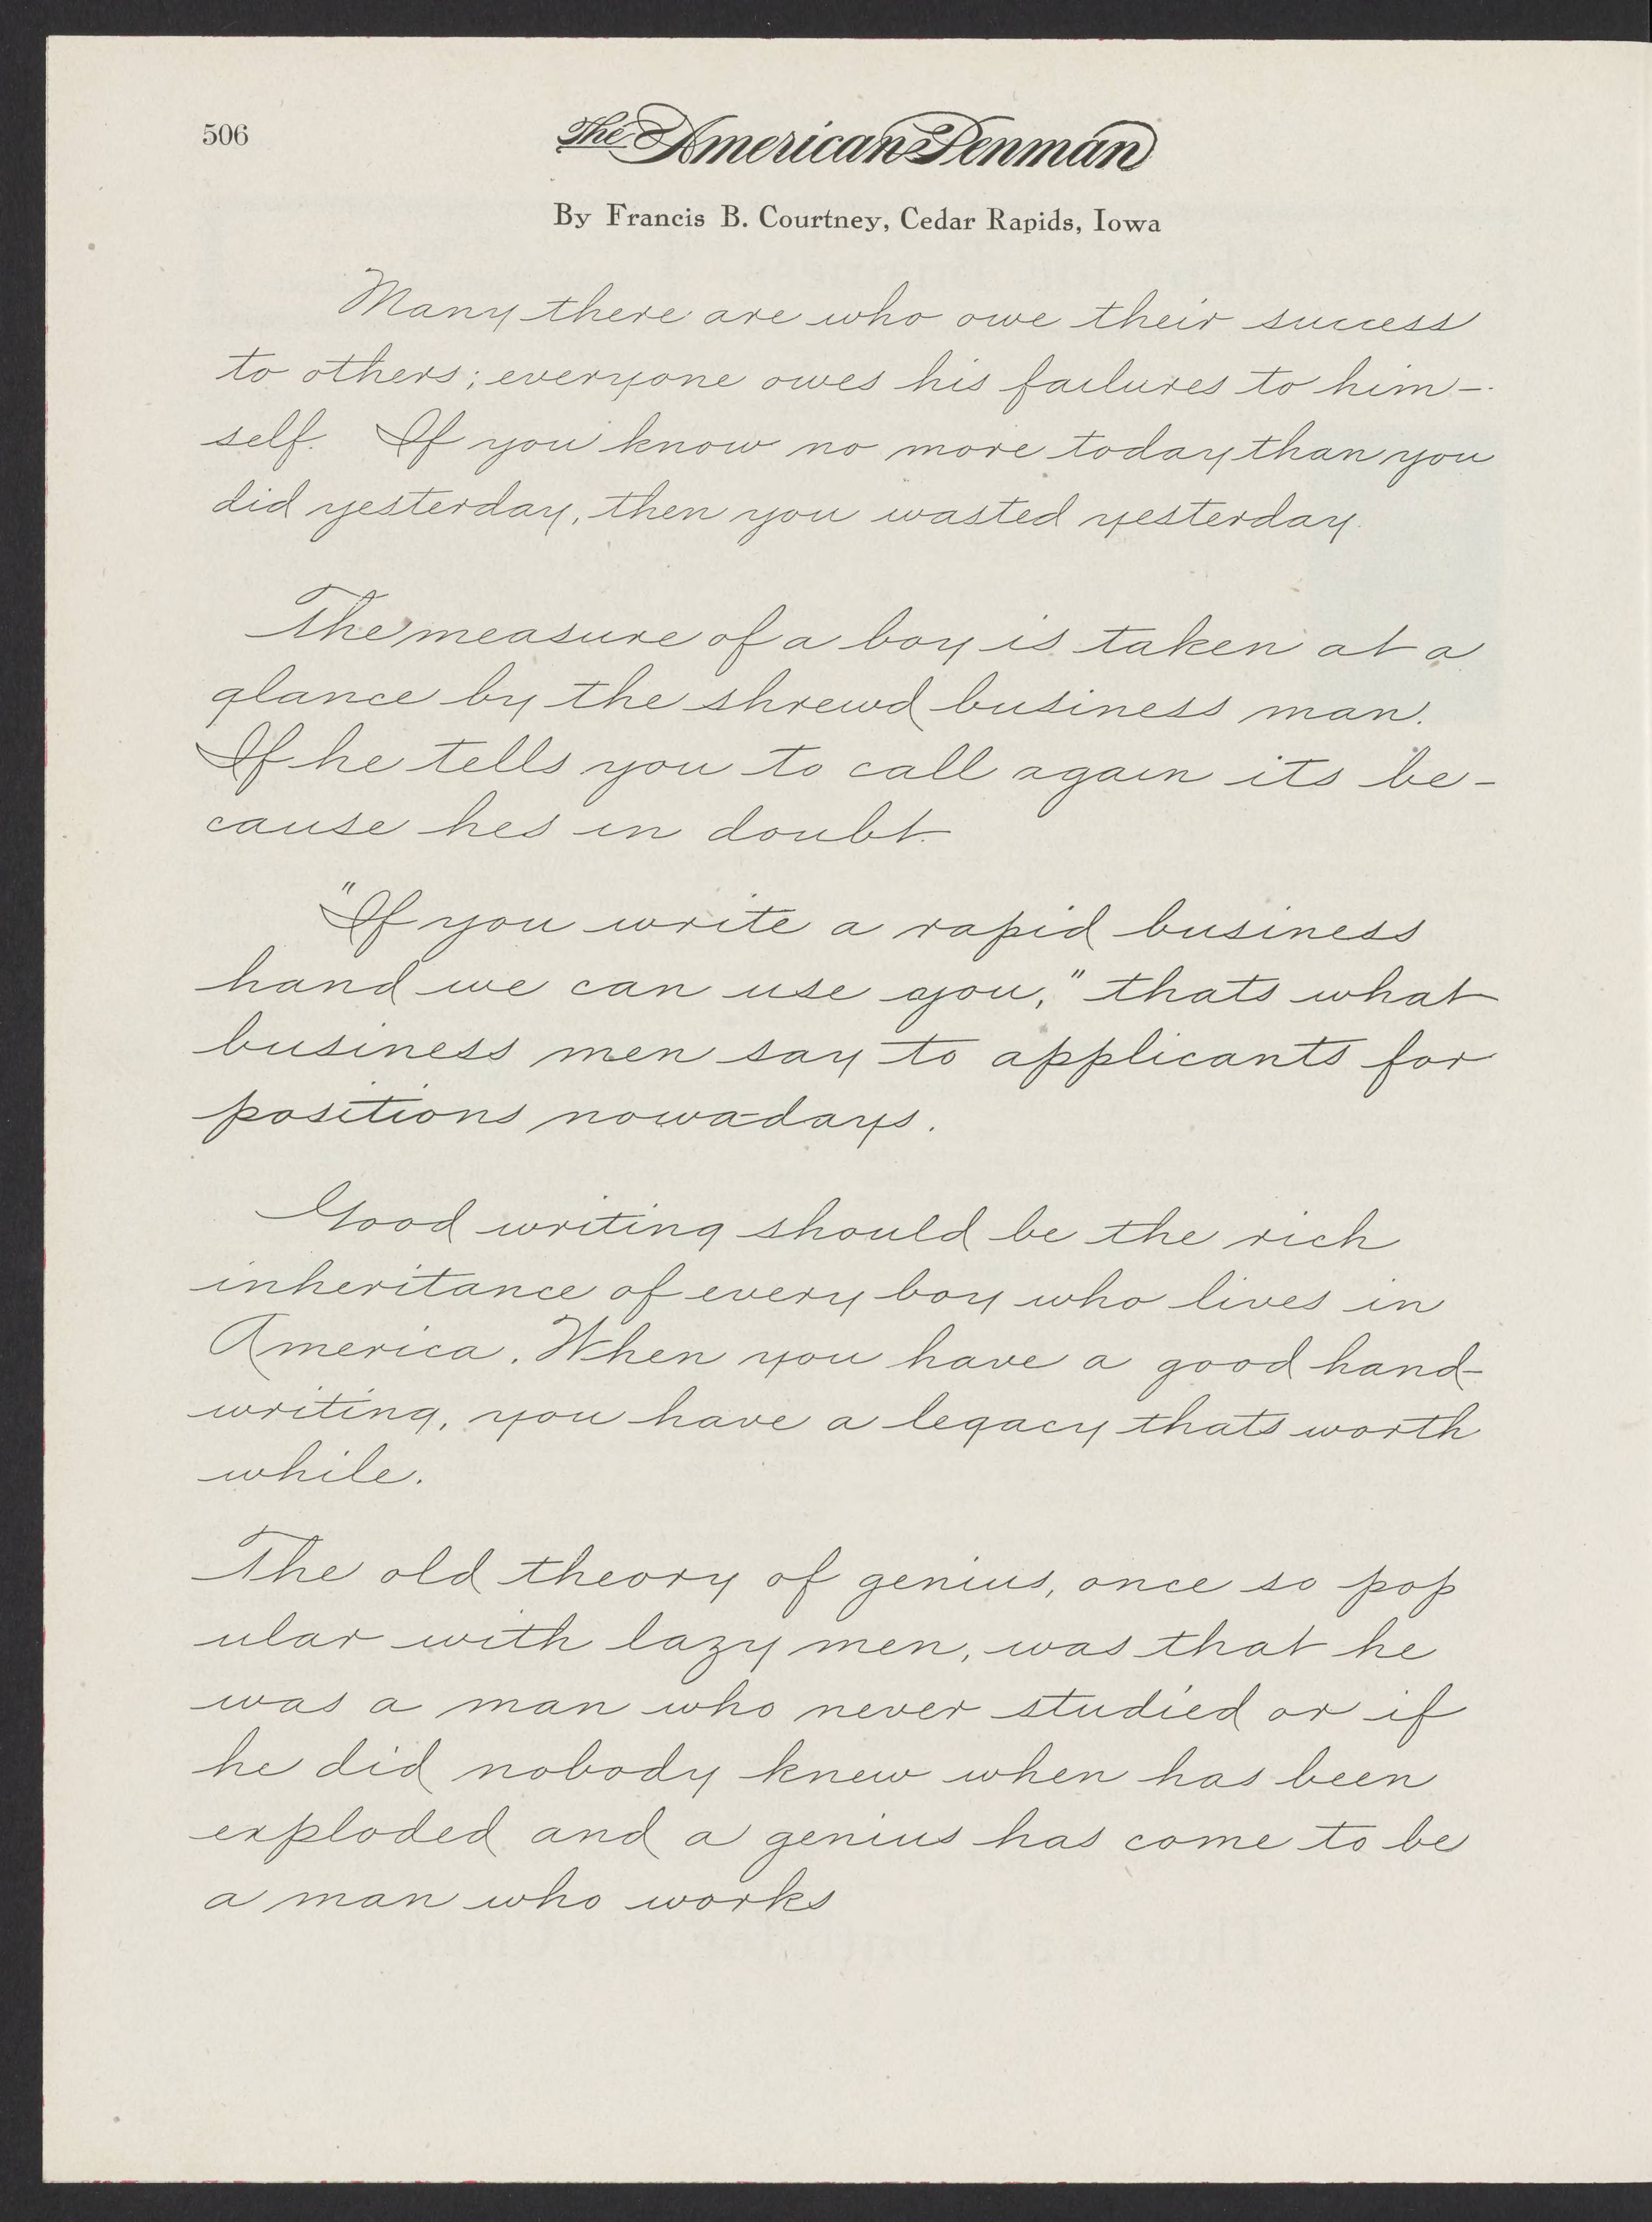 506
The American Penman
By Francis B. Courtney, Cedar Rapids, Iowa
Many there are who owe their success
to others; everyone owes his failures to him-
self. If you know no more today than you
did yesterday, then you wasted yesterday.
The measure of a boy is taken at a
glance by the shrewd business man.
If he tells you to call again its be-
cause hes in doubt.
"If you write a rapid business
hand we can use you," thats what
business men say to applicants for
positions nowadays.
Good writing should be the rich
inheritance of every boy who lives in
America. When you have a good hand-
writing, you have a legacy thats worth
while.
The old theory of genius, once so pop
ular with lazy men, was that he
was a man who never studied or if
he did nobody knew when has been
exploded and a genius has come to be
a man who works